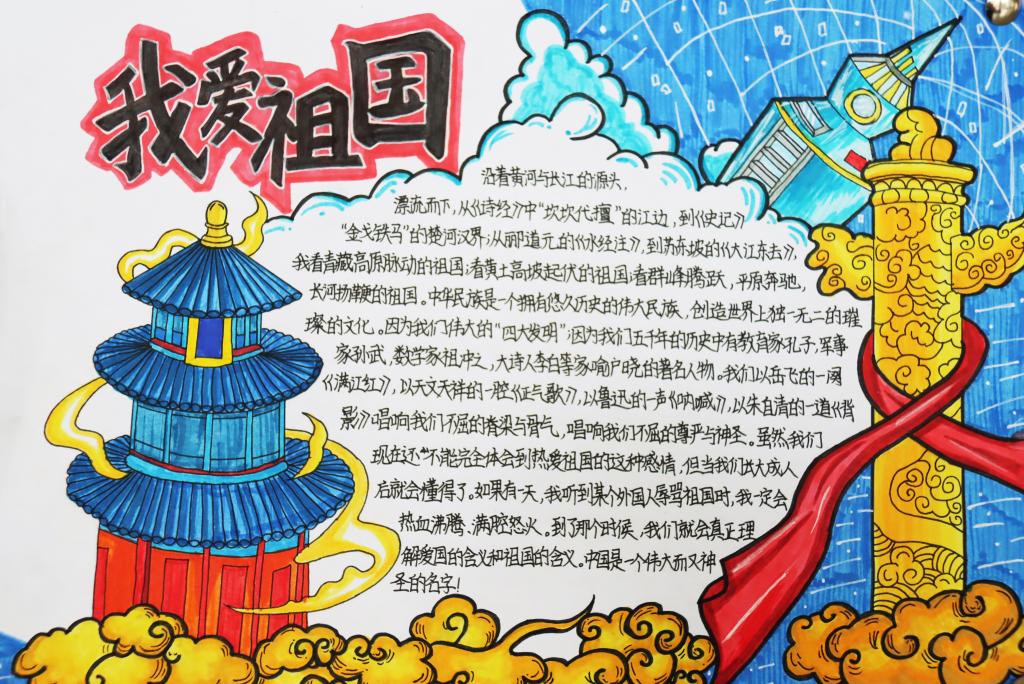 我爱祖国
沿着黄河与长江的源头，
漂流而下，从《诗经》中“坎坎伐檀”的江边，到《史记》
“金戈铁马”的楚河汉界；从郦道元的《水经注》，到苏东坡的《大江东去》，
我看青藏高原脉动的祖国；看黄土高坡起伏的祖国；看群山峰腾跃，平原奔驰，
长河扬鞭的祖国。中华民族是一个拥有悠久历史的伟大民族，创造世界上独一无二的璀
璨的文化。因为我们伟大的“四大发明”；因为我们五千年的历史中有教育家孔子，军事
家孙武，数学家祖冲之，大诗人李白等家喻户晓的著名人物。我们以岳飞的一阕
《满江红》，以天文天祥的一腔《正气歌》，以鲁迅的一声《呐喊》，以朱自清的一道《背
影》唱响我们不屈的脊梁与骨气，唱响我们不屈的尊严与神圣。虽然我们
现在还“不能完全体会到热爱祖国的这种感情，但当我们出大成人
后就会懂得了。如果有一天，我听到某个外国人辱骂祖国时，我一定会
热血沸腾、满腔怒火。到了那个时候，我们就会真正理
解爱国的含义和祖国的含义。中国是一个伟大而又神
圣的名字！